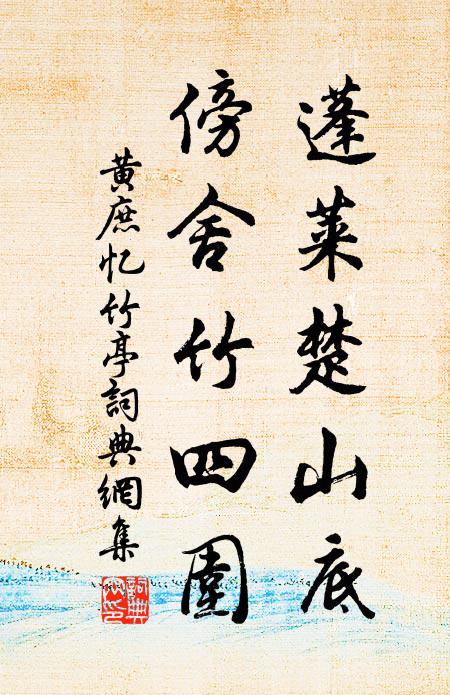 蓬莱楚山底
傍舍竹四圍
黄庶忆竹亭詞典網集